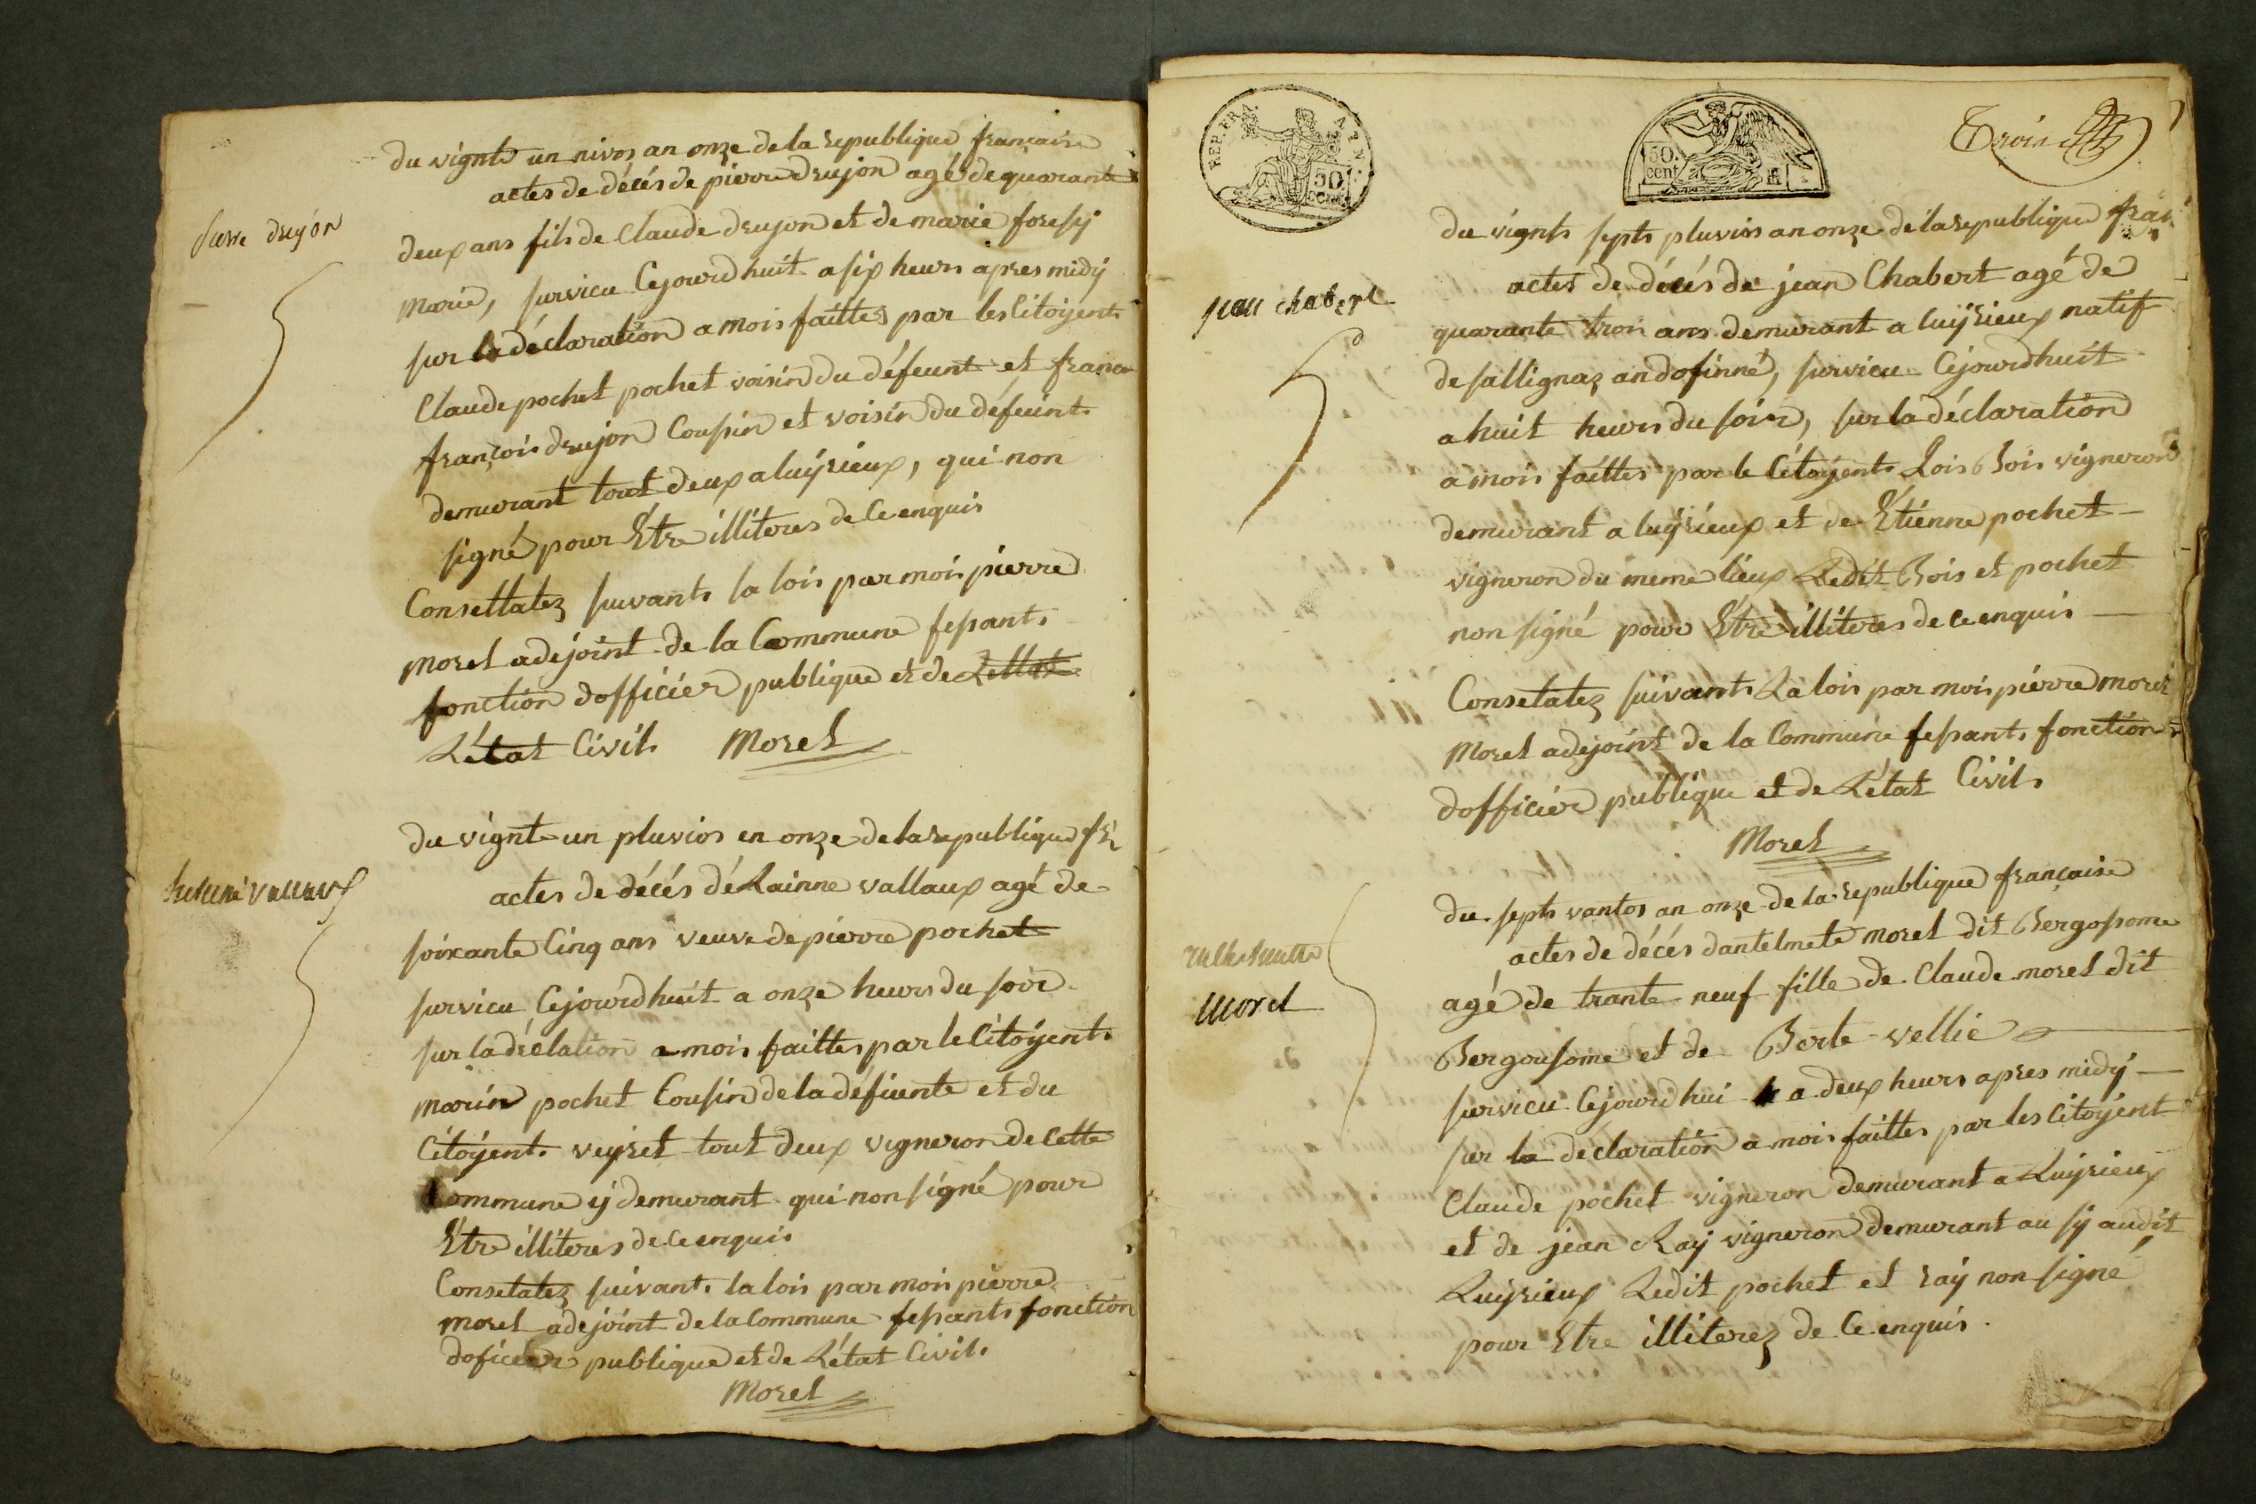 du vignte un nivos an onze de la republique française
actes de décés de pierre drujon agé de quarante
pierre drujon
deux ans fils de Claude drujon et de marie foresy
marié, survicu Cejourdhuit a six heurs apres midy
sur la déclaration a mois faittes par les Citoyent
Claude pochet pochet voisin du défeunt et
françois drujon Cousin et voisin du défeunt
demurant tout deux a luÿrieux, qui non
signé pour Etre illiteres de Ce enquis
Consettatez suivant la lois par mois pierre
morel adejoint de la Commune fesant
fonction dofficier publique et de Lettat
Létat Civil Morel
du vignt un pluvios en onze de la republique fr
vallaux
actes de décés dé Lainne vallaux agé de
soixante Cinq ans veuve de pierre pochet
survicu Cejourdhuit a onze heurs du soir
sur la déclation a mois faittes par le Citoÿent
marin pochet Cousin de la défunte et du
Citoÿent veyret tout deux vigneron de Cette
Commune ÿ demurant qui non signé pour
Etre illiteres de Ce enquis
Consetatez suivant la lois par mois pierre
morel adejoint de la Commune fesant fonction
doficier publique et de Létat Civil
Morel
REP. FRA.
50.
cent.
Trois
du vignt sept pluvios an onze de la republique fran
actes de décés de jean Chabert agé de
jean chabert
quarante trois ans demurant a luÿrieux natif
de sallignaz an dofinné, survicu Cejourdhuit
a huit heurs du soir, sur la déclaration
a mois faittes par le Citoÿent Lois Bois vigneron
demurant a luÿrieux et de Etienne pochet
vigneron du meme lieux Ledit Bois et pochet
non signé pour Etre illiteres de Ce enquis
Consetatez suivant La lois par mois pierre morel
Morel adejoint de la Commune fesant fonction
dofficier publique et de Létat Civil
Morel
du sept vantos an onze de la republique française
actes de décés dantelmete morel dit Bergosome
morel
agé de trante neuf fille de Claude morel dit
Bergousome et de Berte vellie
survicu Cejourdhui a deux heurs apres midy
sur la declaration a mois faittes par les Citoÿent
Claude pochet vigneron demurant a Luÿrieux
et de jean Raÿ vigneron demurant au sÿ audit
Luÿrieux Ledit pochet et raÿ non signé
pour Etre illiterez de Ce enquis.